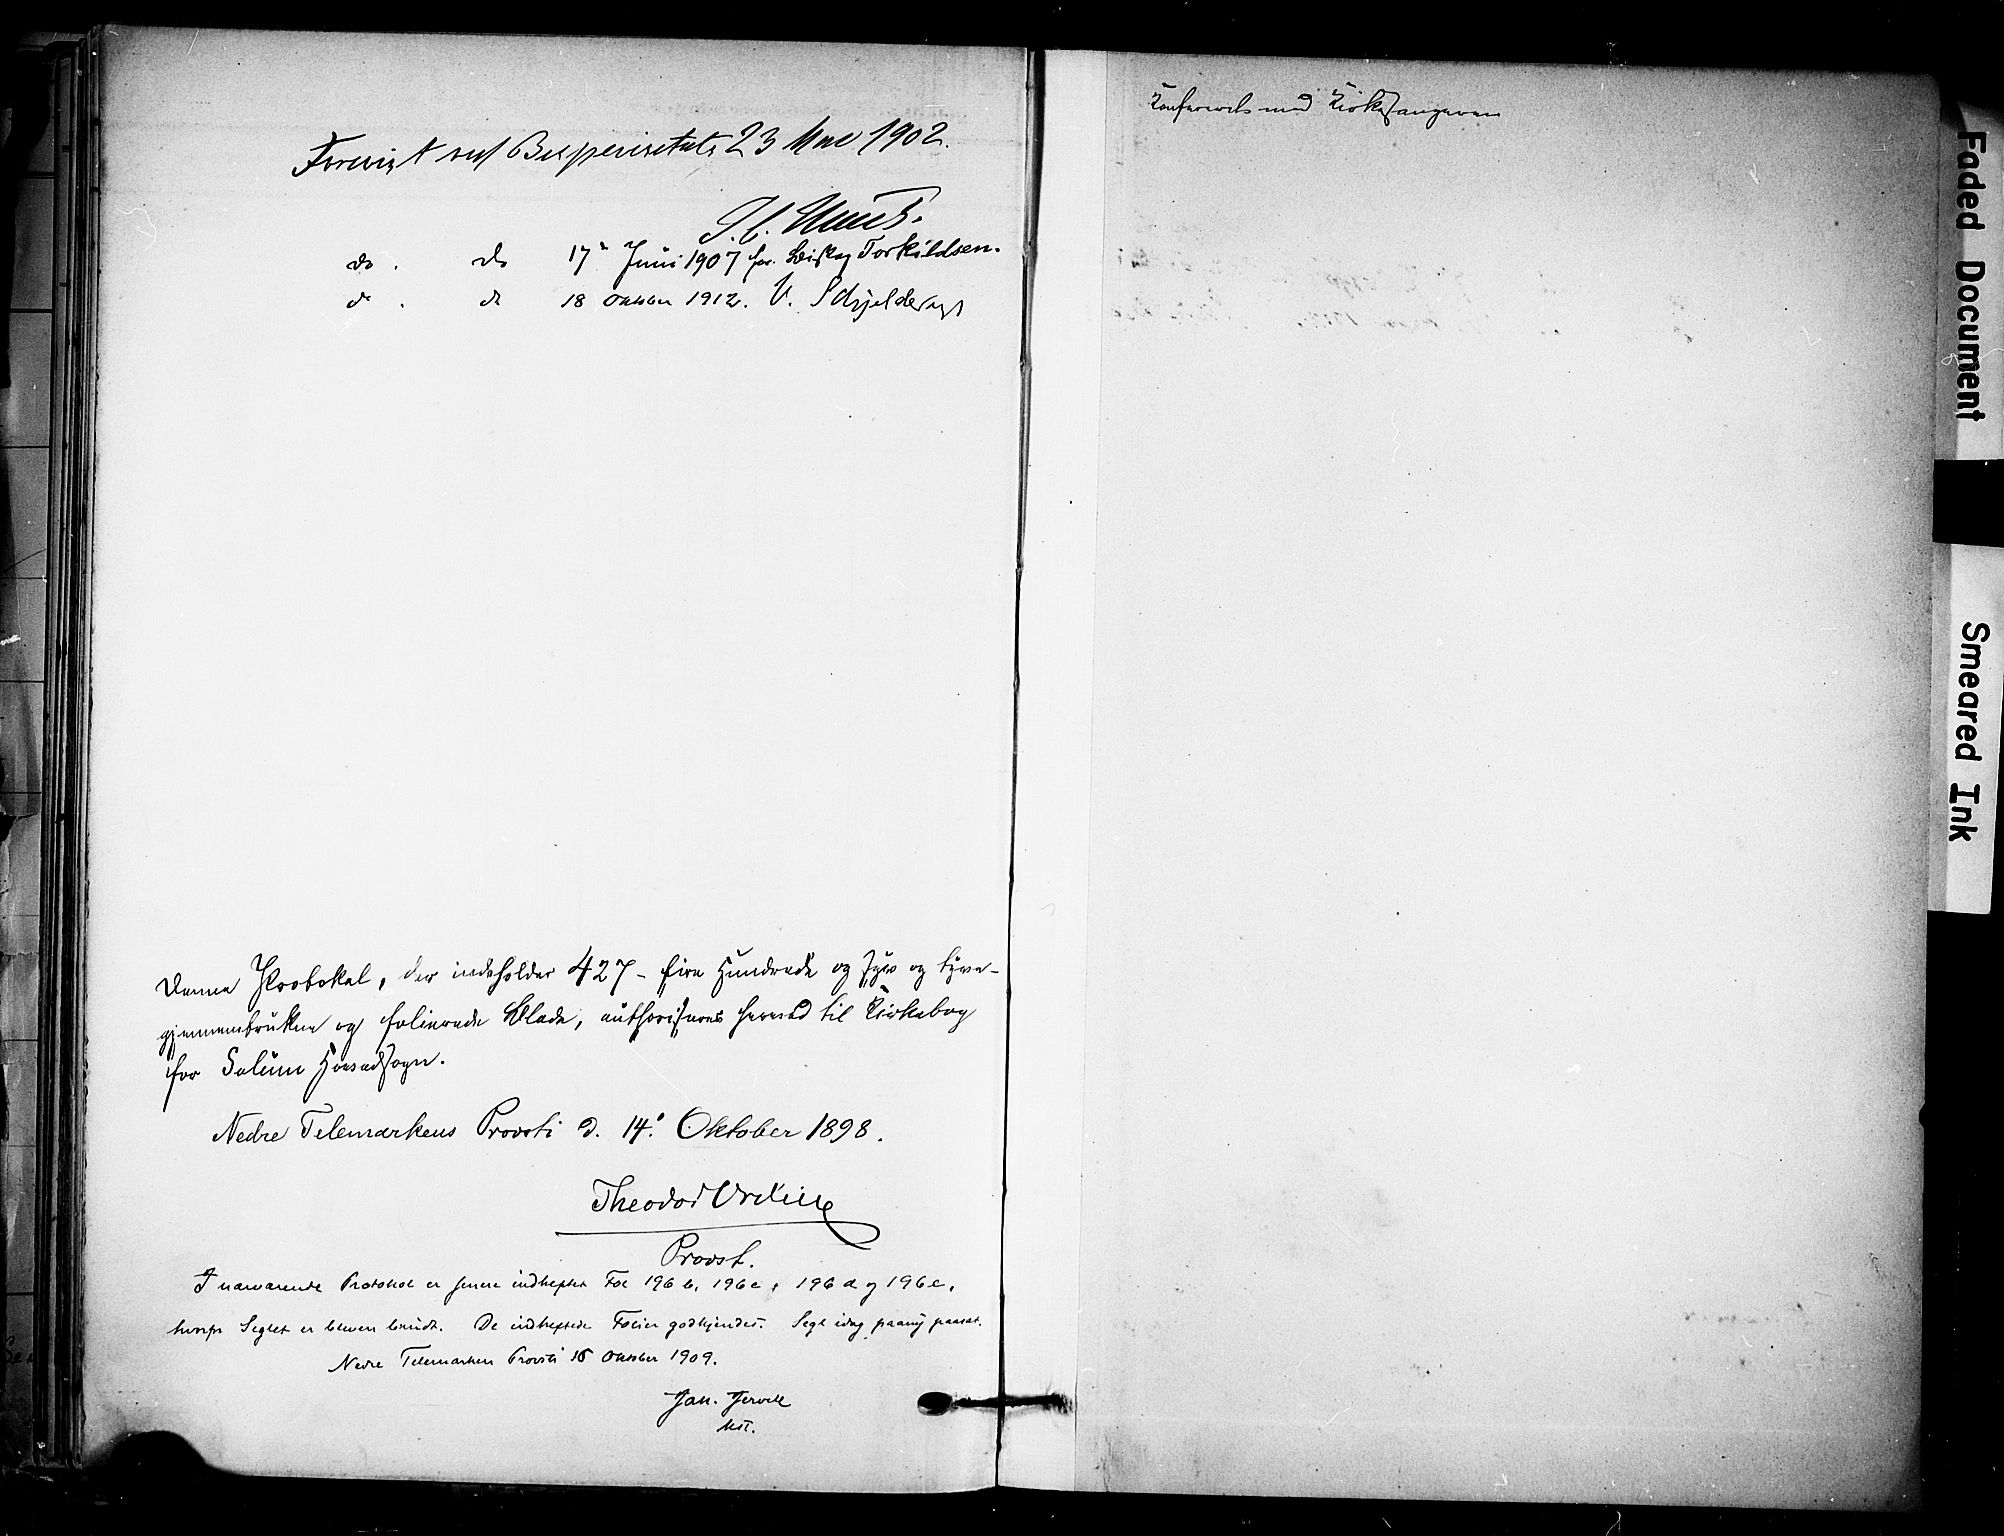 Forevist ved Bispevisitats 23 Mai 1902.
do. do 17de Juni 1907 for Biskop Torkildsen.
do. do 18 Oktober 1912. V. Schjelderup
Denne Protokol, der indeholder 427 - fire Hundrede og syv og tyve -
gjennemtrukne og folierede Blade, authoriseres herved til Kirkebog
for Solum Hovedsogn.
Nedre Telemarkens Provsti d. 14de Oktober 1898.
Theodor Ording
Provst.
I nærværende Protokol er senere indheftet Fol 196 b, 196 c, 196 d og 196 e,
hvorfor Seglet er bleven brudt. De indheftede Folier godkjendes. Segl idag paany paasat.
Nedre Telemarken Provsti 15 Oktober 1909.
Konfereret med Kirkesangeren
Faded Document
Smeared Ink